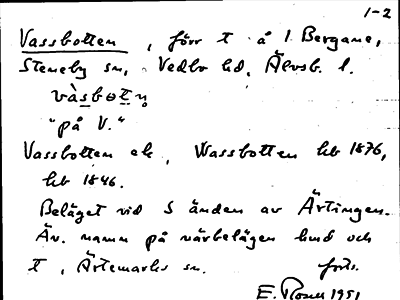 1-2
Vassbotten, förr t å 1 Bergane,
Steneby sn, Vedbo hd, Älvsb. l.
vàsbot̲n̥
"på V."
Vassbotten ek, Wassbotten hb 1876,
hb 1846.
Beläget vid S änden av Ärtingen.
Äv. namn på närbelägen hmd och
t, Ärtemarks sn. forts.
E. Rosell 1951